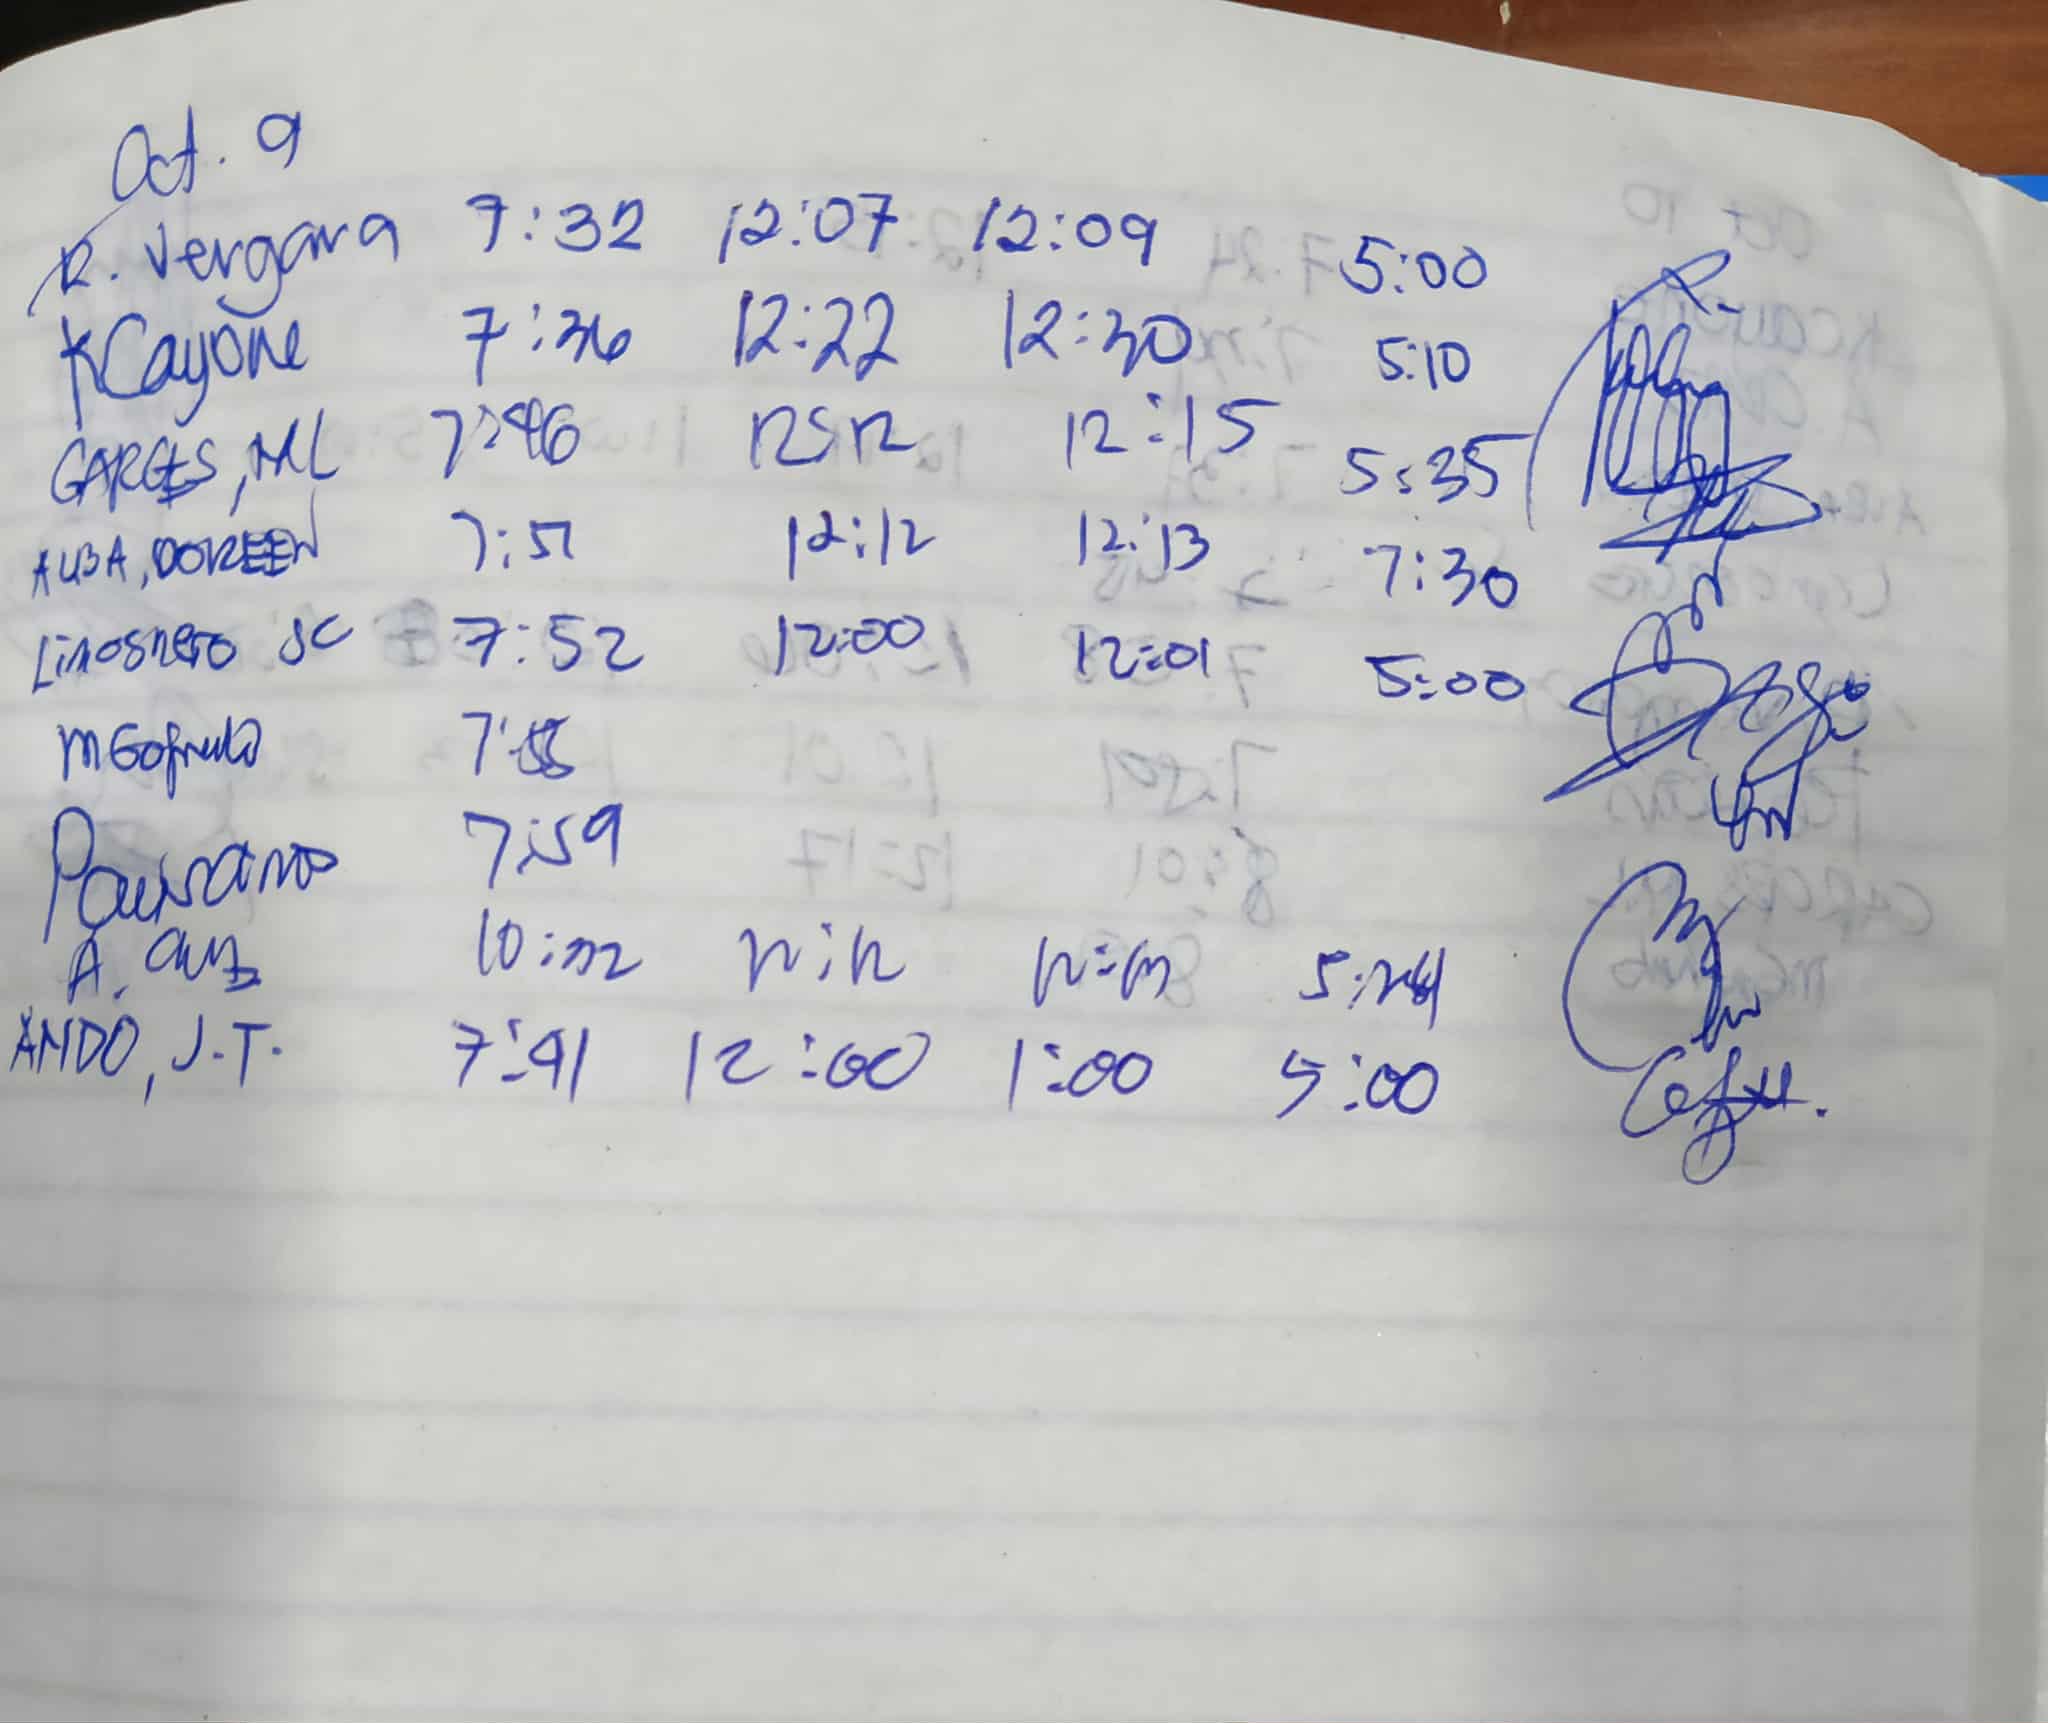 Oct. 9
R. Vergara 7:32 12:07 12:09 5:00
KCayone 7:36 12:22 12:30 5:10
GARGES, ML 7:46 12:12 12:15 5:35
AUBA, DOREEN 7:51 12:12 12:13 7:30
Limosnero JC 7:52 12:00 12:01 5:00
7:58
7:59
A. 10:22 12:12 5:24
ANDO, J.T. 7:41 12:00 1:00 5:00